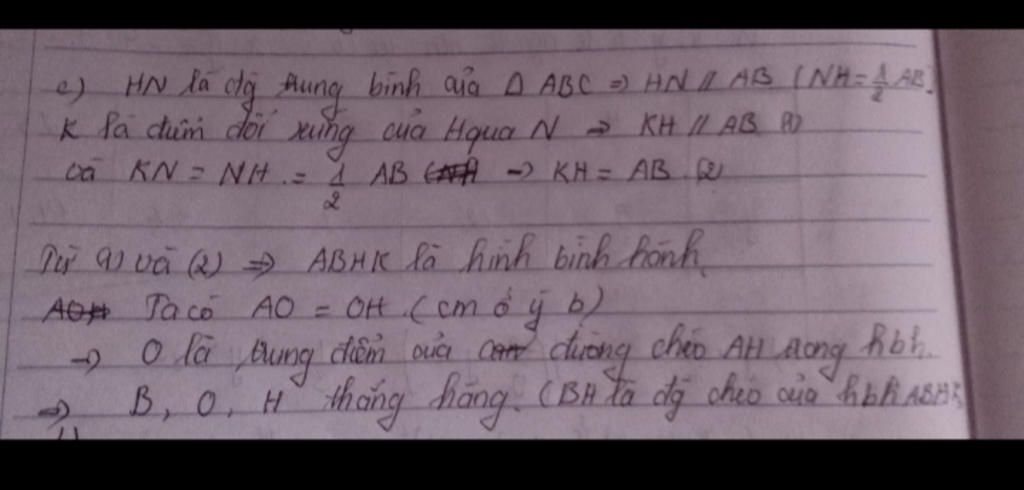 c) HN là đg trung bình của Δ ABC => HN // AB (NH = 1/2 AB)
K là điểm đối xứng của H qua N => KH // AB (1)
và KN = NH = 1/2 AB -> KH = AB (2)
Từ (1) và (2) => ABHK là hình bình hành.
Ta có AO = OH (cm ở ý b)
-> O là trung điểm của đường chéo AH trong hbh.
=> B, O, H thẳng hàng. (BH là đg chéo của hbh ABHK